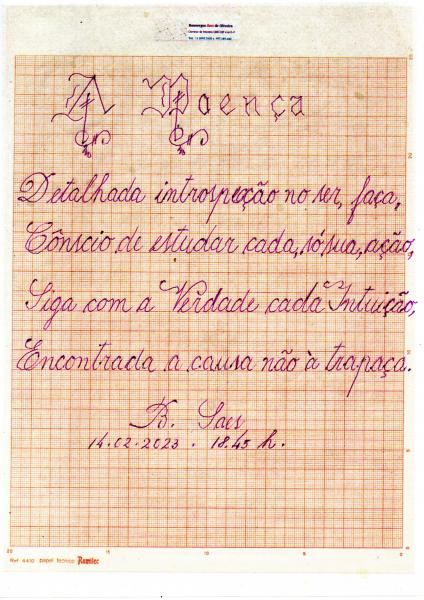 A Doença
Detalhada introspecção no ser, faça,
Cônscio de estudar cada, só, sua, ação,
Siga com a Verdade cada Intuição,
Encontrada a causa não à trapaça.
B. Saes
14.02.2023 . 18.45 h.
20 15 10 5 0
Ref. 4410 papel técnico Romitec